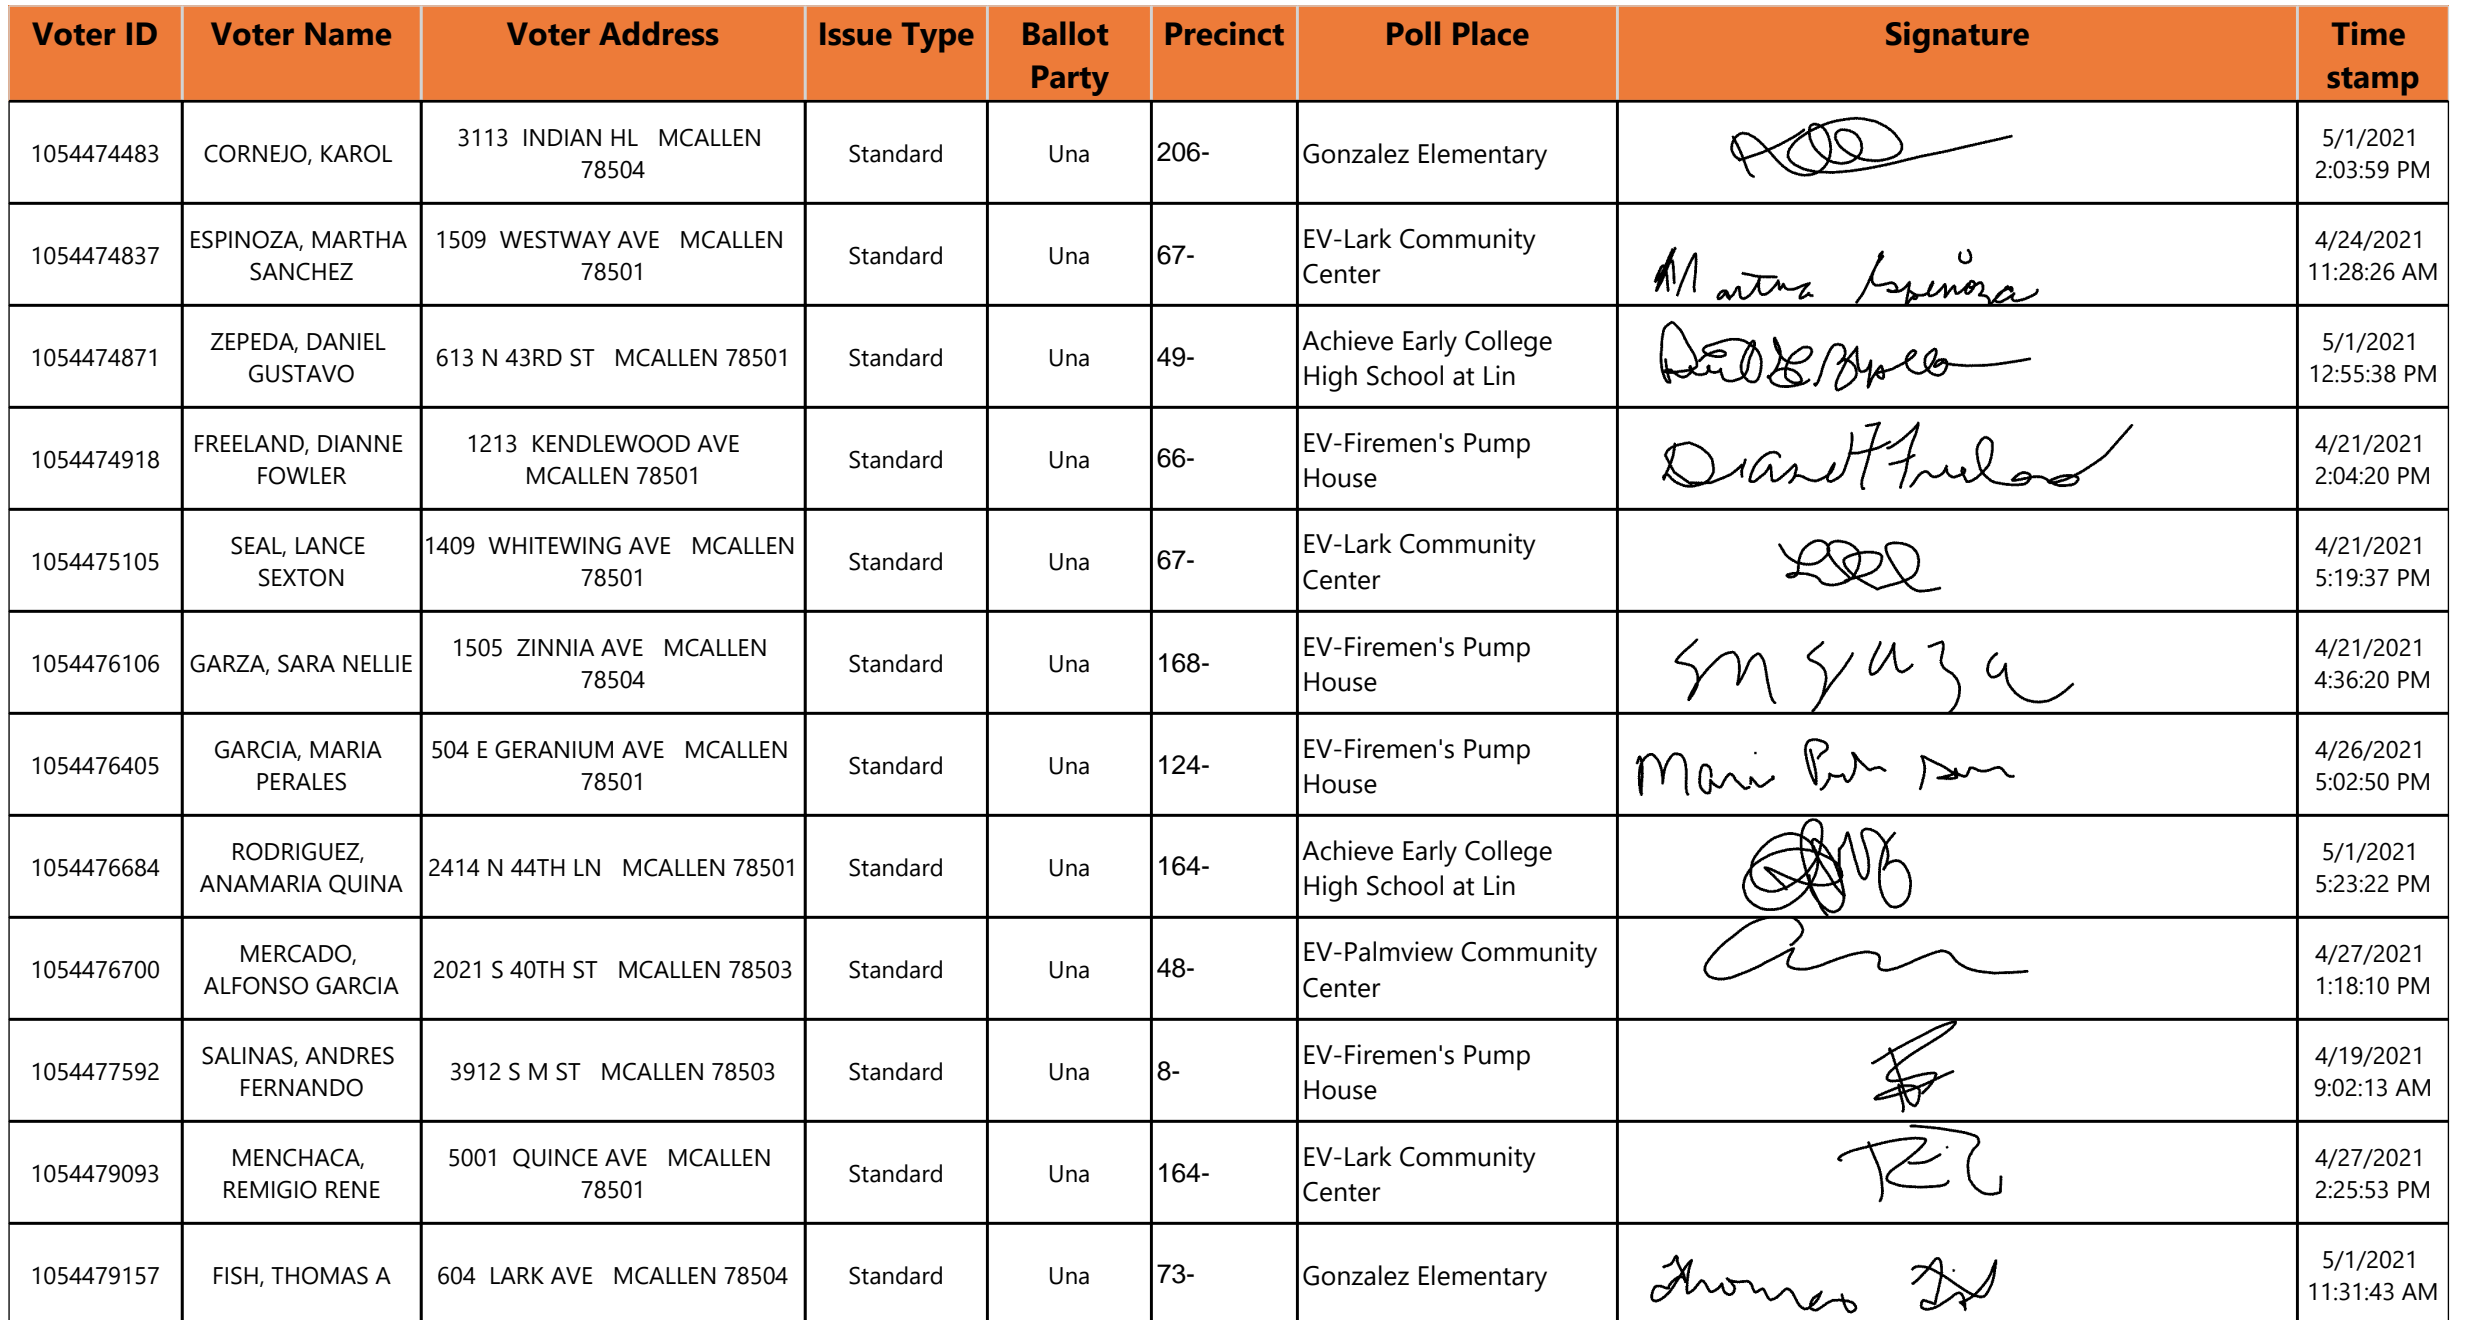 Voter ID Voter Name Voter Address Issue Type Ballot Party Precinct Poll Place Signature Time stamp
1054474483 CORNEJO, KAROL 3113 INDIAN HL MCALLEN 78504 Standard Una 206- Gonzalez Elementary 5/1/2021 2:03:59 PM
1054474837 ESPINOZA, MARTHA SANCHEZ 1509 WESTWAY AVE MCALLEN 78501 Standard Una 67- EV-Lark Community Center Martha Espinoza 4/24/2021 11:28:26 AM
1054474871 ZEPEDA, DANIEL GUSTAVO 613 N 43RD ST MCALLEN 78501 Standard Una 49- Achieve Early College High School at Lin 5/1/2021 12:55:38 PM
1054474918 FREELAND, DIANNE FOWLER 1213 KENDLEWOOD AVE MCALLEN 78501 Standard Una 66- EV-Firemen's Pump House 4/21/2021 2:04:20 PM
1054475105 SEAL, LANCE SEXTON 1409 WHITEWING AVE MCALLEN 78501 Standard Una 67- EV-Lark Community Center 4/21/2021 5:19:37 PM
1054476106 GARZA, SARA NELLIE 1505 ZINNIA AVE MCALLEN 78504 Standard Una 168- EV-Firemen's Pump House 4/21/2021 4:36:20 PM
1054476405 GARCIA, MARIA PERALES 504 E GERANIUM AVE MCALLEN 78501 Standard Una 124- EV-Firemen's Pump House 4/26/2021 5:02:50 PM
1054476684 RODRIGUEZ, ANAMARIA QUINA 2414 N 44TH LN MCALLEN 78501 Standard Una 164- Achieve Early College High School at Lin 5/1/2021 5:23:22 PM
1054476700 MERCADO, ALFONSO GARCIA 2021 S 40TH ST MCALLEN 78503 Standard Una 48- EV-Palmview Community Center 4/27/2021 1:18:10 PM
1054477592 SALINAS, ANDRES FERNANDO 3912 S M ST MCALLEN 78503 Standard Una 8- EV-Firemen's Pump House 4/19/2021 9:02:13 AM
1054479093 MENCHACA, REMIGIO RENE 5001 QUINCE AVE MCALLEN 78501 Standard Una 164- EV-Lark Community Center 4/27/2021 2:25:53 PM
1054479157 FISH, THOMAS A 604 LARK AVE MCALLEN 78504 Standard Una 73- Gonzalez Elementary Thomas Fish 5/1/2021 11:31:43 AM